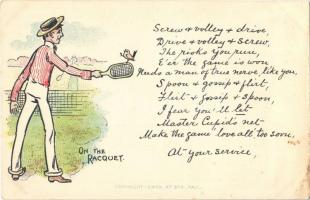 Screw & volley & drive,
Drive & volley & screw.
The risks you run,
E'er the game is won
Needs a man of true nerve, like you,
Spoon & gossip & flirt,
Flirt & gossip & spoon,
I fear you'll let
Master Cupid's net
Make the game "love all" too soon.
At your service,
ON THE
RACQUET.
COPYRIGHT